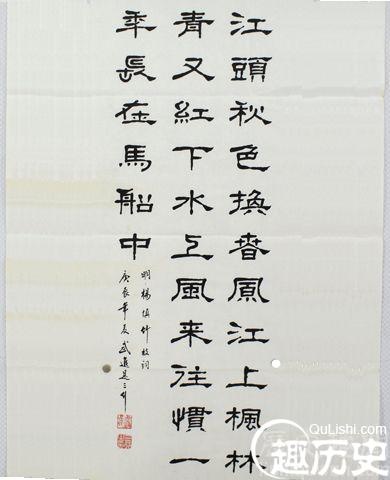 江頭秋色換春風江上楓林
青又紅下水上風来往慣一
年長在馬船中
明楊慎竹枝詞
庚辰年夏武進是三
QuLiShi.com
趣历史